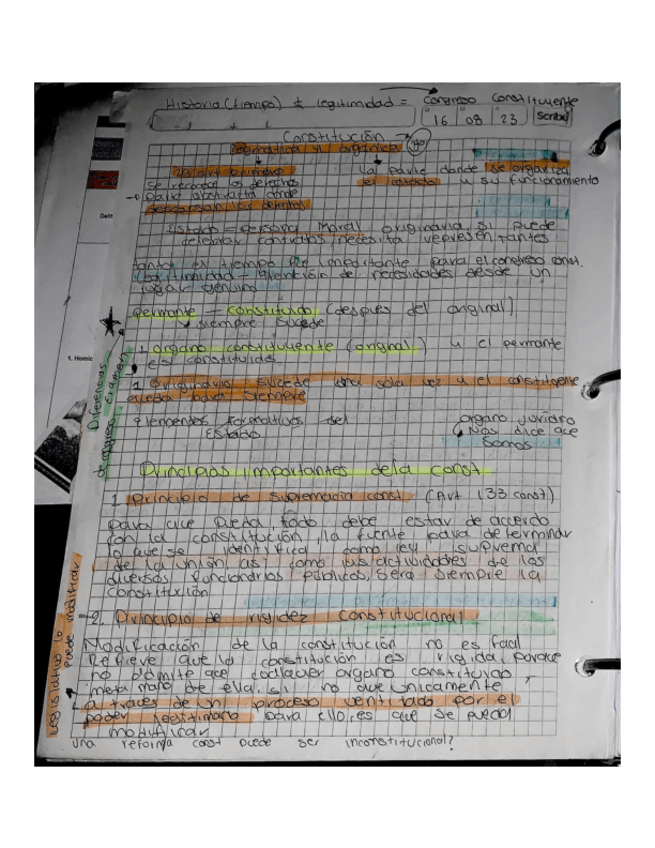 Historia (tiempo) + legitimidad = Congreso Constituyente
16 08 23 Scribe
Constitución →
Dogmática y orgánica
la parte donde se organiza
se reconoce los derechos el estado y su funcionamiento
→ parte abstracta donde
descansan los derechos
Estado = persona Moral originaria, si puede
celebrar contratos, necesita representantes
tanto el tiempo fue importante para el congreso const.
legitimidad = atención de necesidades desde un
lugar genuino
Permante = constituido (despues del original)
siempre sucede
1 organo constituyente (original) y el permante
es constituidos
1 Originario sucede una sola vez y el constituente
queda para siempre
Diferencias examen
de congreso
Delit
1. Homic
elementos formativos del
Estado
organo juridico
Nos dice que
Somos
Principios importantes de la const
1 Principio de Supremacia const (Art 133 const)
para que pueda, todo debe estar de acuerdo
con la constitución, la fuente para determinar
lo que se identifica como ley suprema
de la union asi como las actividades de los
diversos funcionarios públicos, sera siempre la
Constitución
2. Principio de rigidez constitucional
Modificación de la constitución no es facil
Refiere que la constitución es rigida, porque
no admite que cualquier organo constituido,
meta mano de ella, si no que unicamente
a traves de un proceso ventilado por el
poder legitimario para ello, es que se pueda
modificar
legislativo lo
puede modificar
una reforma const puede ser inconstitucional?